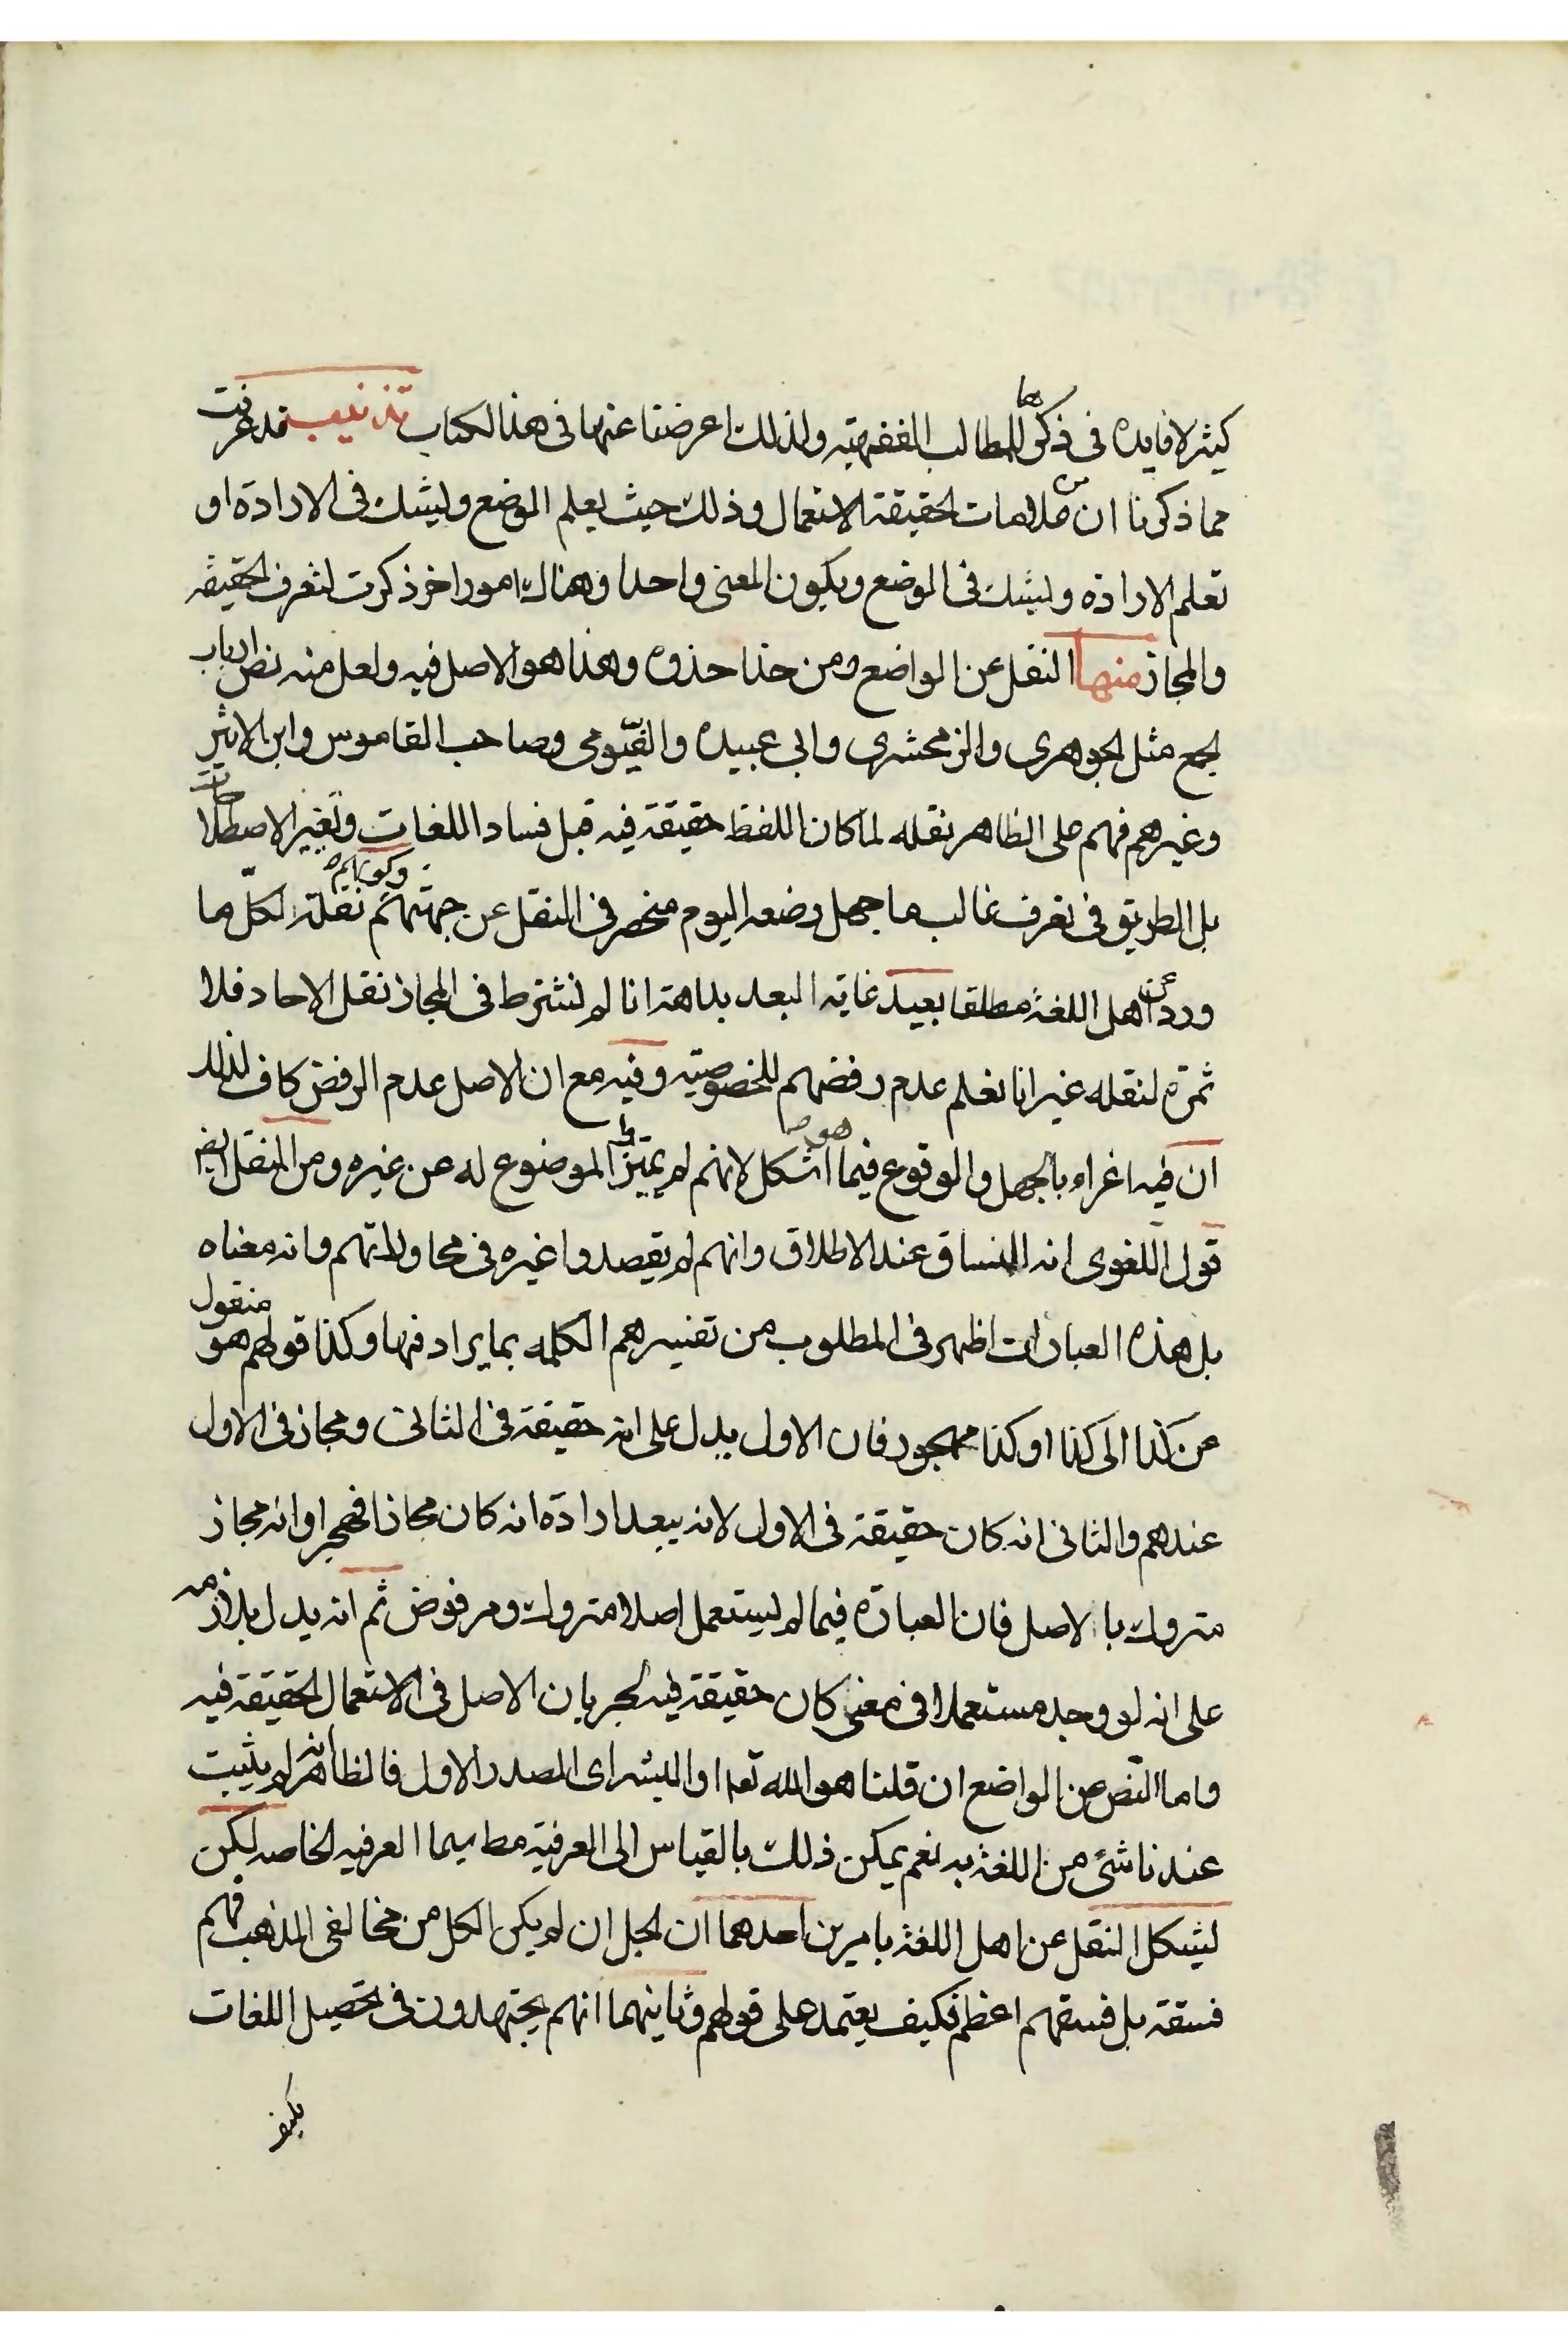 كثير لا فايده فى ذكرها للمطالب الفقهيته ولذلك اعرضنا عنها فى هذا الكتاب تذنيب قد عرفت
مما ذكرنا ان من علامات الحقيقة الاستعمال وذلك حيث يعلم الوضع ويشك فى الارادة او
تعلم الارادة ويشك فى الوضع ويكون المعنى واحدا وهناك امور اخر ذكرت لتعرف الحقيقه
والمجاز منها النقل عن الواضع ومن حذا حذوه وهذا هو الاصل فيه ولعل منه نص ارباب
لجمع مثل الجوهرى والزمحشرى وابى عبيده والفيّومى وصاحب القاموس وابن الاثير
وغيرهم فهم على الظاهر نقله لما كان اللفظ حقيقة فيه قبل فساد اللغات وتغير الاصطلاحات
بل الطريق فى تعرف غالب ما جهل وضعه اليوم منحصر فى النقل عن جهتهم وكونهم نقلة لكلّ ما
ورد عن اهل اللغة مطلقا بعيد غايه البعد بداهة انا لم نشترط فى المجاز نقل الاحاد فلا
ثمرة لنقله غير انا نعلم عدم رفضهم للخصوصيته وفيه مع ان الاصل عدم الرفض كاف لذلك
ان فيه اغراء بالجهل والوقوع فيما هو اشكل لانهم لم يميّزوا الموضوع له عن غيره ومن النقل ايض
قول اللغوى انه المنساق عند الاطلاق وانهم لم يقصدوا غيره فى محاولاتهم وانه معناه
بل هذه العبارات اظهر فى المطلوب من تفسيرهم الكلمه بما يرادفها وكذا قولهم هو منقول
عن كذا الى كذا او كذا مهجور فان الاول يدل على انه حقيقة فى الثانى ومجاز فى الاول
عندهم والثانى انه كان حقيقة فى الاول لانه يبعد ارادة انه كان مجازا فهجر او انه مجاز
متروك بالاصل فان العبارة فيما لم يستعمل اصلا متروك ومرفوض ثم انه يدل بلازمه
على انه لو وجد مستعملا فى معنى كان حقيقة فيه لجريان الاصل فى الاستعمال الحقيقة فيه
واما النّص عن الواضع ان قلنا هو الله تعا او البشر اى المصدر الاول فالظاهر انه لم يثبت
عندنا شئ من اللغة به نعم يمكن ذلك بالقياس الى العرفية مط سيما العرفيه الخاصه لكن
يشكل النقل عن اهل اللغة بامرين احدهما ان لجل ان لم يكن الكل من مخالفى المذهب فهم
فسقة بل فسقهم اعظم فكيف يعتمد على قولهم وثانيهما انهم يجتهدون فى تحصيل اللغات